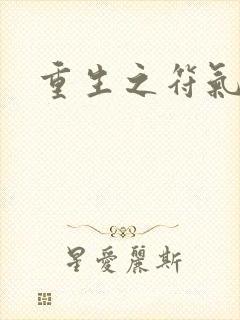 重生之符氣
星愛麗斯